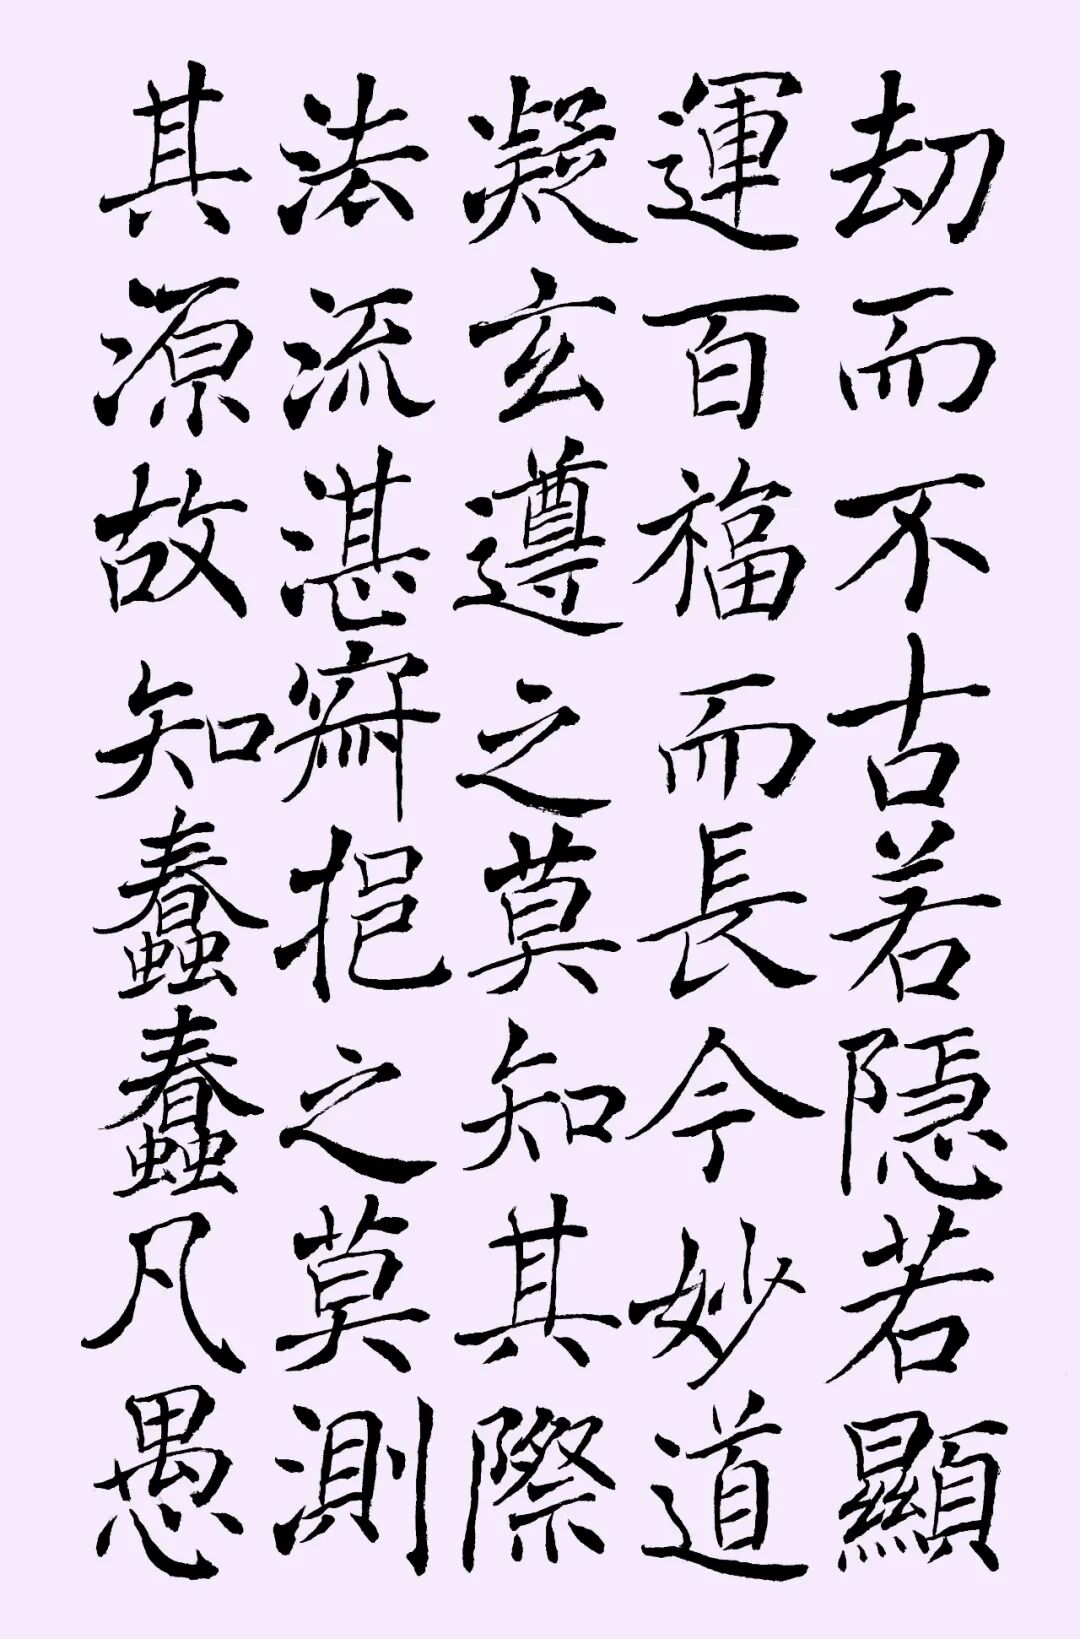 劫而不古若隱若顯
運百福而長今妙道
凝玄遵之莫知其際
法流湛寂挹之莫測
其源故知蠢蠢凡愚